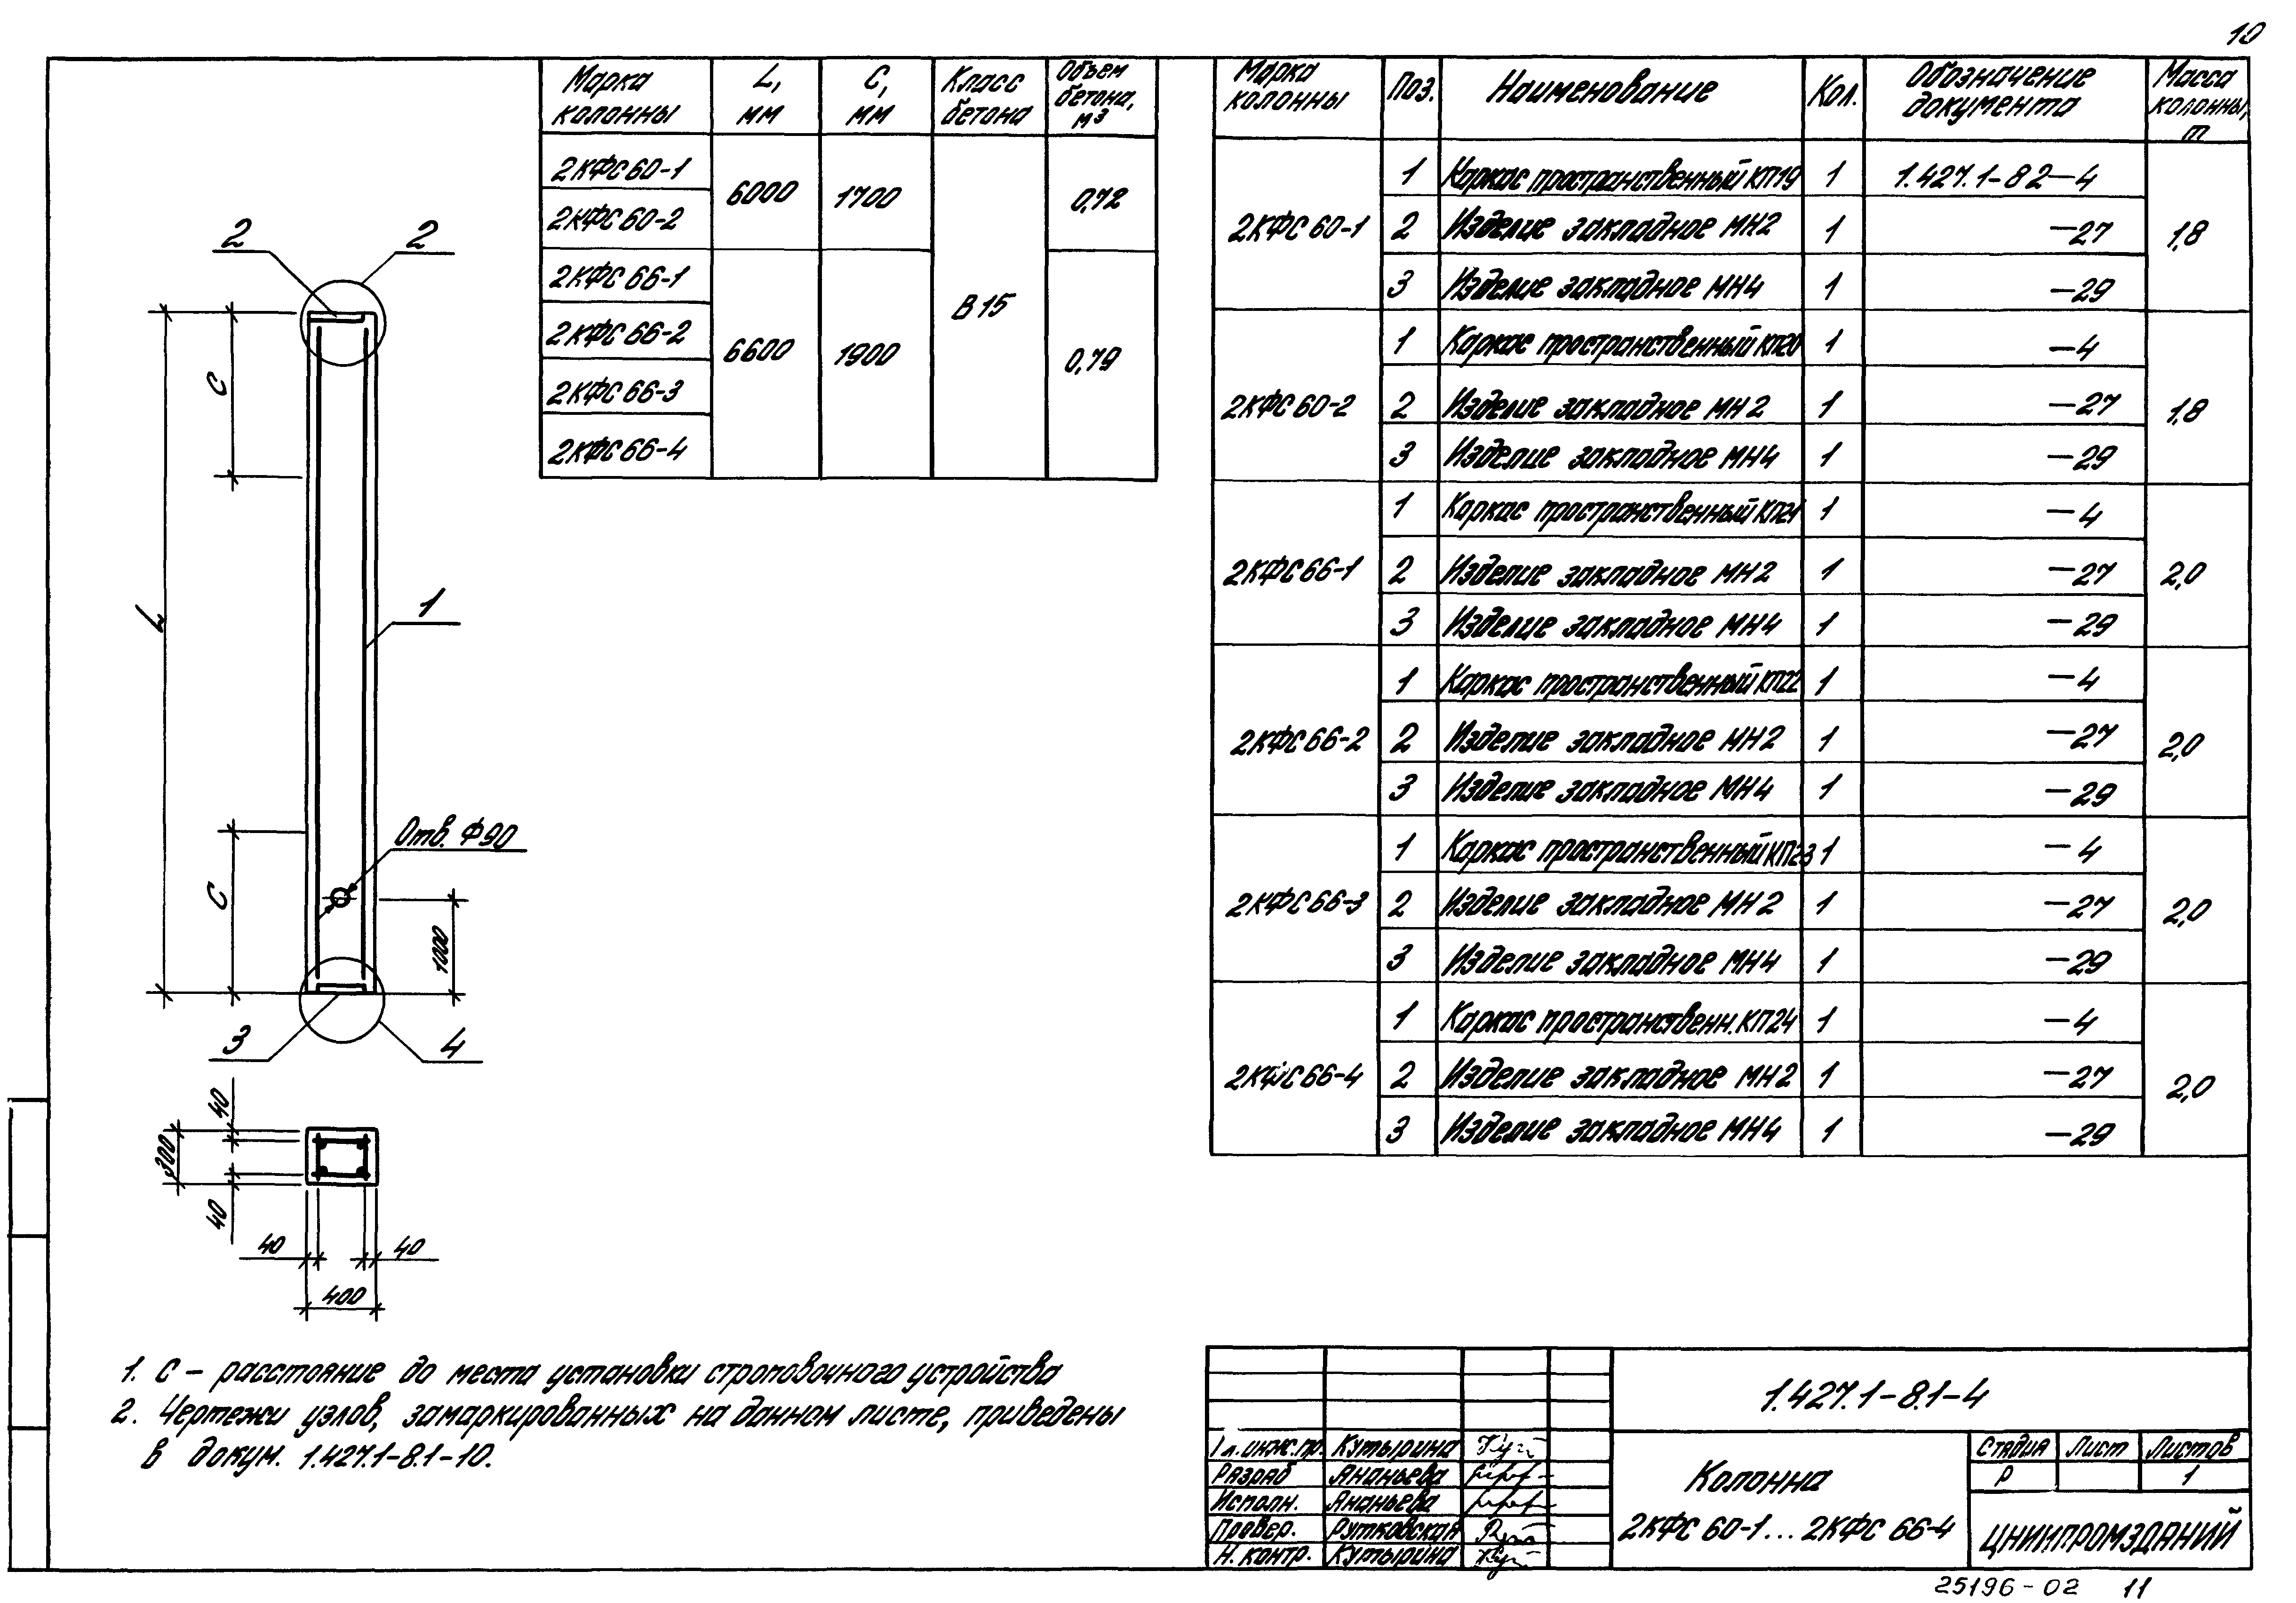 10
Марка колонны | L, мм | С, мм | Класс бетона | Объем бетона, м³
2КФС 60-1 | 6000 | 1700 | В 15 | 0,72
2КФС 60-2
2КФС 66-1 | 6600 | 1900 | 0,79
2КФС 66-2
2КФС 66-3
2КФС 66-4
Марка колонны | Поз. | Наименование | Кол. | Обозначение документа | Масса колонны, т
2КФС 60-1 | 1 | Каркас пространственный КП19 | 1 | 1.427.1-8 2-4 | 1,8
2 | Изделие закладное МН2 | 1 | -27
3 | Изделие закладное МН4 | 1 | -29
2КФС 60-2 | 1 | Каркас пространственный КП20 | 1 | -4 | 1,8
2 | Изделие закладное МН2 | 1 | -27
3 | Изделие закладное МН4 | 1 | -29
2КФС 66-1 | 1 | Каркас пространственный КП21 | 1 | -4 | 2,0
2 | Изделие закладное МН2 | 1 | -27
3 | Изделие закладное МН4 | 1 | -29
2КФС 66-2 | 1 | Каркас пространственный КП22 | 1 | -4 | 2,0
2 | Изделие закладное МН2 | 1 | -27
3 | Изделие закладное МН4 | 1 | -29
2КФС 66-3 | 1 | Каркас пространственный КП23 | 1 | -4 | 2,0
2 | Изделие закладное МН2 | 1 | -27
3 | Изделие закладное МН4 | 1 | -29
2КФС 66-4 | 1 | Каркас пространственн. КП24 | 1 | -4 | 2,0
2 | Изделие закладное МН2 | 1 | -27
3 | Изделие закладное МН4 | 1 | -29
2
2
С
L
1
Отв. Ф90
С
1000
3
4
40
300
40
40
40
400
1. С - расстояние до места установки строповочного устройства
2. Чертежи узлов, замаркированных на данном листе, приведены
в докум. 1.427.1-8.1-10.
1.427.1-8.1-4
Гл. инж. пр. Кутырина
Разраб Ананьева
Исполн. Ананьева
Провер. Рутковская
Н. контр. Кутырина
Колонна
2КФС 60-1... 2КФС 66-4
Стадия | Лист | Листов
Р | 1
ЦНИИПРОМЗДАНИЙ
25196-02 11